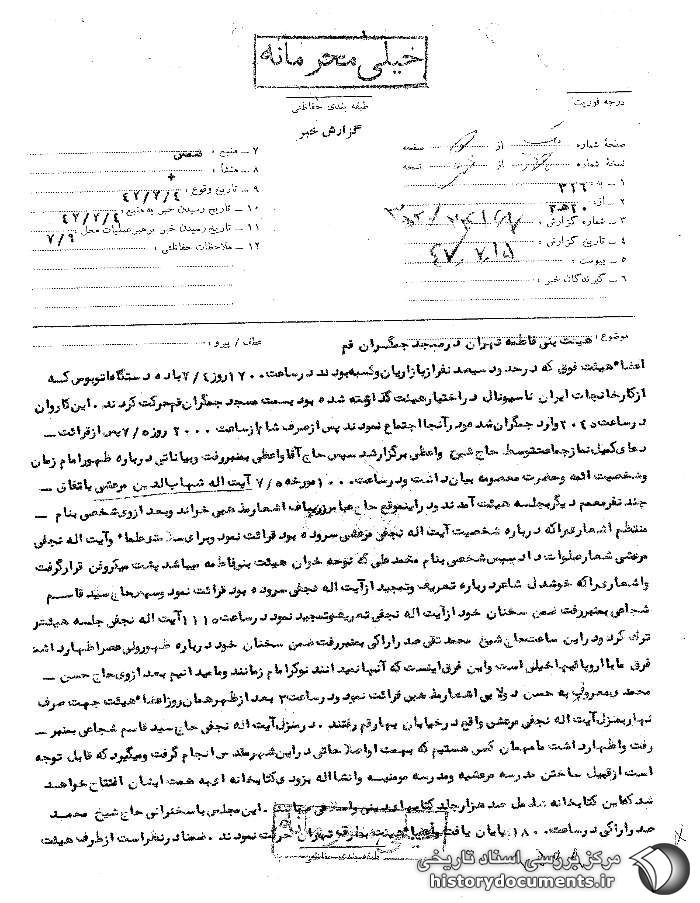 خیلی محرمانه
درجه فوریت
طبقه بندی حفاظتی
گزارش خبر
صفحهٔ شماره از صفحه
نسخهٔ شماره از نسخه
۱ ـ به : ۳۱۶
۲ ـ از : ۲۰ ه‍ ۳
۳ ـ شماره گزارش :
۴ ـ تاریخ گزارش : ۴۷/۷/۱۵
۵ ـ پیوست :
۶ ـ گیرندگان خبر :
۷ ـ منبع :
۸ ـ منشأ :
۹ ـ تاریخ وقوع : ۴۷/۷/۴
۱۰ ـ تاریخ رسیدن خبر به منبع : ۴۷/۷/۴
۱۱ ـ تاریخ رسیدن خبر به رهبر عملیات محل : ۷/۹
۱۲ ـ ملاحظات حفاظتی :
موضوع : هیئت بنی فاطمه تهران در مسجد جمکران قم
عطف / پیرو :
اعضاء هیئت فوق که در حدود سیصد نفر از بازاریان و کسبه بودند در ساعت ۱۷۰۰ روز ۷/۴ با ده دستگاه اتوبوس کسه
از کارخانجات ایران ناسیونال در اختیار هیئت گذاشته شده بود بسمت مسجد جمکران قم حرکت کردند . این کاروان
در ساعت ۲۰۴۵ وارد جمکران شده و در آنجا اجتماع نمودند پس از صرف شام از ساعت ۲۰۰۰ روز ۷/۵ پس از قرائت ـ
دعای کمیل نماز جماعت توسط حاج شیخ واعظی برگزار شد سپس حاج آقا واعظی بمنبر رفت و بیاناتی درباره ظهور امام زمان
و شخصیت ائمه و حضرت معصومه بیان داشت و در ساعت ۱۰۰۰ مورخه ۷/۵ آیت اله شهاب الدین مرعشی باتفاق ـ
چند نفر معمم دیگر بجلسه هیئت آمدند و در اینموقع حاج عباس زریباف اشعار مذهبی خواند و بعد از وی شخصی بنام ـ
منتظم اشعاری را که درباره شخصیت آیت اله نجفی مرعشی سروده بود قرائت نمود و برای سلامتی علماء و آیت اله نجفی
مرعشی شعار صلوات داد سپس شخصی بنام محمد علی که نوحه خوان هیئت بنی فاطمه میباشد پشت میکروفن قرار گرفت
و اشعاری را که خوشدل شاعر درباره تعریف و تمجید از آیت اله نجفی سروده بود قرائت نمود و سپس حاج سید قاسم
شجاعی بمنبر رفت ضمن سخنان خود از آیت اله نجفی تعریف و تمجید نمود در ساعت ۱۱۱۵ آیت اله نجفی جلسه هیئت را
ترک کرد و در این ساعت حاج شیخ محمد تقی صدر اراکی بمنبر رفت ضمن سخنان خود درباره ظهور ولی عصر اظهار داشت
فرق ما با اروپائیها خیلی است و این فرق اینست که آنها نمیدانند نوکر امام زمانند و ما میدانیم بعد از وی حاج حسن ـ
محمدی معروف به حسن دولابی اشعار مذهبی قرائت نمود و در ساعت ۳ بعد از ظهر همان روز اعضاء هیئت جهت صرف
نهار بمنزل آیت اله نجفی مرعشی واقع در خیابان بهار قم رفتند . در منزل آیت اله نجفی حاج سید قاسم شجاعی بمنبر ـ
رفت و اظهار داشت ما مهمان کسی هستیم که بهمت او اصلاحاتی در این شهر مقدس انجام گرفت و میگیرد که قابل توجه
است از قبیل ساختن مدرسه مرعشیه و مدرسه مومنیه و انشااله بزودی کتابخانه ای به همت ایشان افتتاح خواهد
شد که این کتابخانه شامل صد هزار جلد کتابهای دینی و میباشد . این مجلس با سخنرانی حاج شیخ محمد
صدر اراکی در ساعت ۱۸۰۰ پایان یافت و اعضاء هیئت بطرف تهران حرکت نمودند . ضمناً در نظر است از طرف هیئت
طبقه بندی حفاظتی
مرکز بررسی اسناد تاریخی
historydocuments.ir